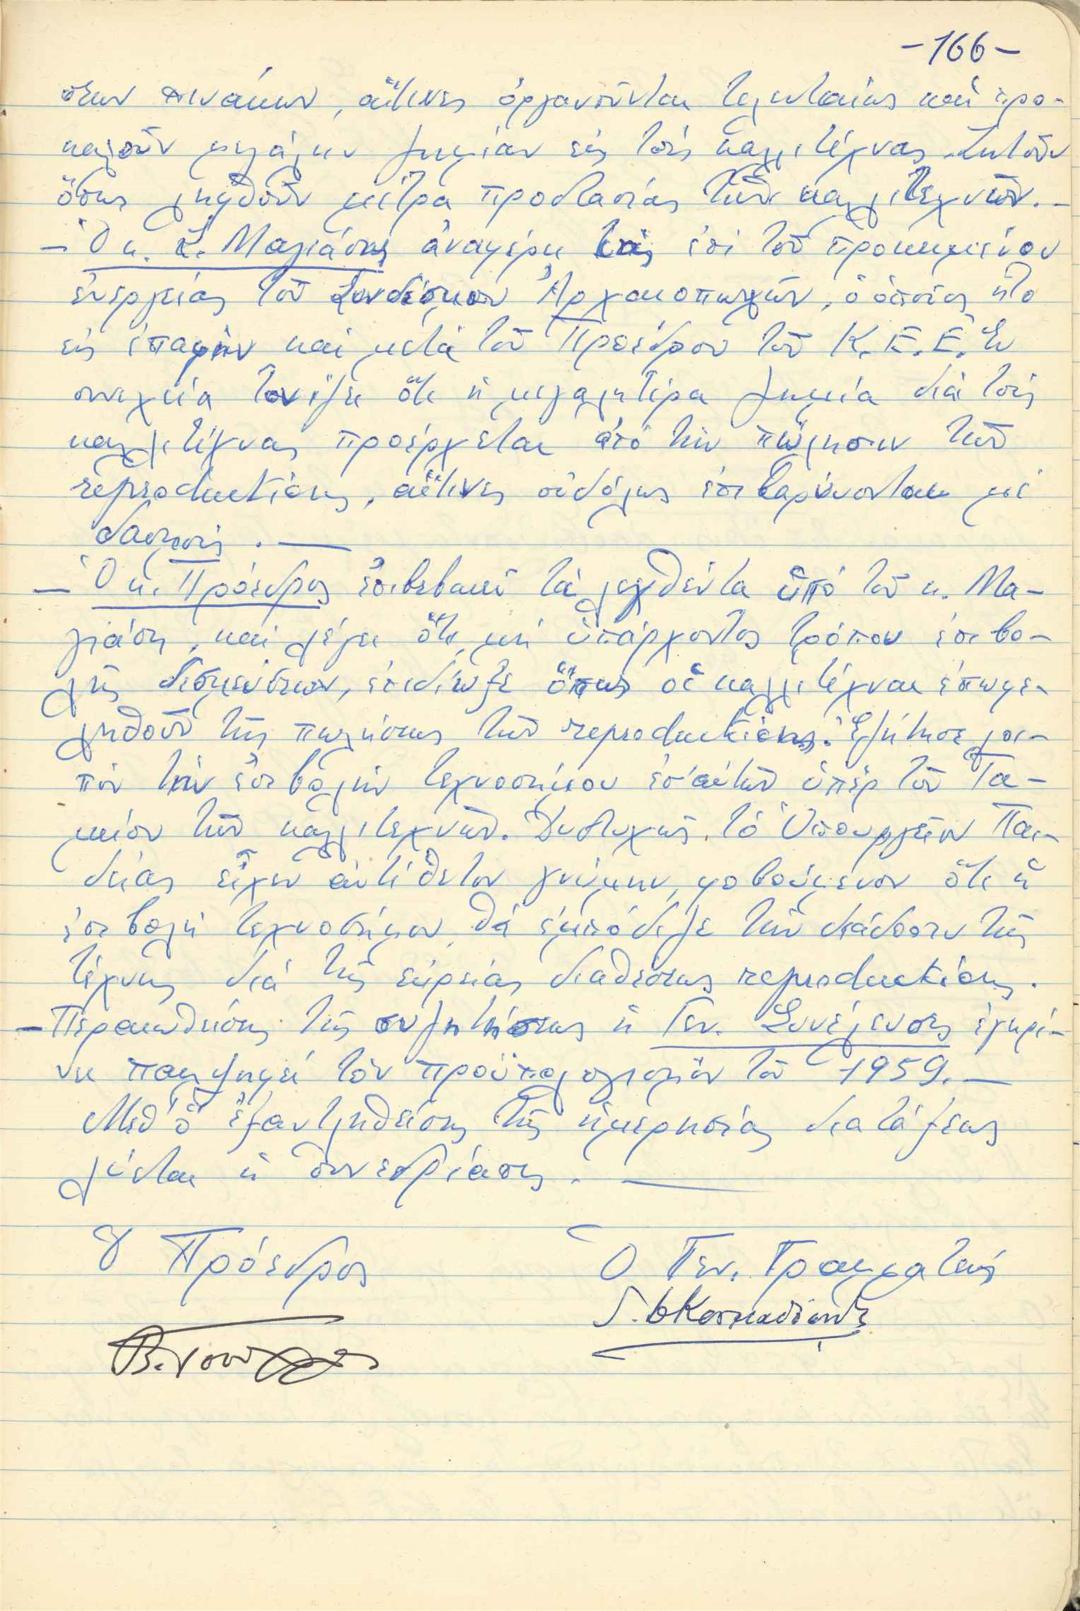 -166-
σεων πινάκων, αἵτινες ὀργανοῦνται τελευταίως καὶ προ-
καλοῦν μεγάλην ζημίαν εἰς τοὺς καλλιτέχνας. Ζητοῦν
ὅπως ληφθοῦν μέτρα προστασίας τῶν καλλιτεχνῶν.-
- Ὁ κ. Μαλιάσης ἀναφέρει τὰς ἐπὶ τοῦ προκειμένου
ἐνεργείας τοῦ Συνδέσμου Ἀρχαιοπωλῶν, ὁ ὁποῖος ἦτο
εἰς ἐπαφὴν καὶ μετὰ τοῦ Προέδρου τοῦ Κ.Ε.Ε. Ἐν
συνεχείᾳ τονίζει ὅτι ἡ μεγαλητέρα ζημία διὰ τοὺς
καλλιτέχνας προέρχεται ἀπὸ τὴν πώλησιν τῶν
reproductions, αἵτινες οὐδόλως ἐπιβαρύνονται μὲ
δασμούς. —
- Ὁ κ. Πρόεδρος ἐπιβεβαιοῖ τὰ λεχθέντα ὑπὸ τοῦ κ. Μα-
λιάση, καὶ λέγει ὅτι μὴ ὑπάρχοντος τρόπου ἐπιβο-
λῆς δεσμεύσεων, ἐπεδίωξε ὅπως οἱ καλλιτέχναι ἐπωφε-
ληθοῦν τῆς πωλήσεως τῶν reproductions. Ἐζήτησε λοι-
πὸν τὴν ἐπιβολὴν τεχνοσήμου ἐπ' αὐτῶν ὑπὲρ τοῦ Τα-
μείου τῶν καλλιτεχνῶν. Δυστυχῶς, τὸ Ὑπουργεῖον Παι-
δείας εἶχεν ἀντίθετον γνώμην, φοβούμενον ὅτι ἡ
ἐπιβολὴ τεχνοσήμου θὰ ἐμπόδιζε τὴν διάδοσιν τῆς
τέχνης διὰ τῆς εὐρείας διαθέσεως reproductions.
- Περαιωθείσης τῆς συζητήσεως ἡ Γεν. Συνέλευσις ἐγκρί-
νει παμψηφεὶ τὸν προϋπολογισμὸν τοῦ 1959. —
Μεθ' ὃ ἐξαντληθείσης τῆς ἡμερησίας διατάξεως
λύεται ἡ συνεδρίασις. —
Ὁ Πρόεδρος
Ὁ Γεν. Γραμματεὺς